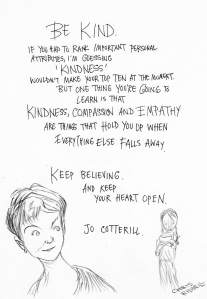 BE KIND.
IF YOU HAD TO RANK IMPORTANT PERSONAL
ATTRIBUTES, I'M GUESSING
'KINDNESS'
WOULDN'T MAKE YOUR TOP TEN AT THE MOMENT.
BUT ONE THING YOU'RE GOING TO
LEARN IS THAT
KINDNESS, COMPASSION AND EMPATHY
ARE THINGS THAT HOLD YOU UP WHEN
EVERYTHING ELSE FALLS AWAY.
KEEP BELIEVING.
AND KEEP
YOUR HEART OPEN.
JO COTTERILL